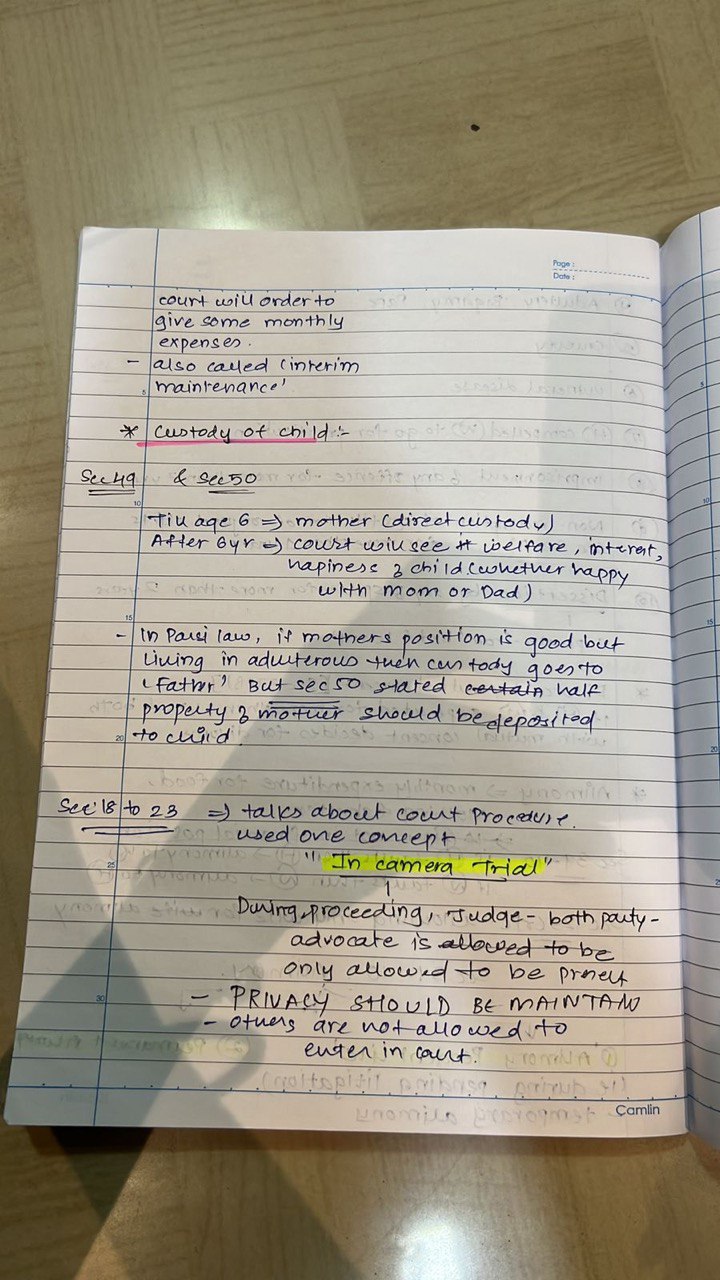 Page :
Date :
court will order to
give some monthly
expenses.
- also called 'interim
maintenance'
* Custody of child :-
Sec 49 & Sec 50
Till age 6 ⇒ mother (direct custody)
After 6yr ⇒ court will see it welfare, interest,
hapiness & child (whether happy
with mom or Dad)
- In Parsi law, if mothers position is good but
living in adulterous then custody goes to
'Father' But sec 50 stated certain half
property & mother should be deposited
to child.
Sec. 18 to 23 ⇒ talks about court procedure.
used one concept
"In camera Trial"
During, proceeding, Judge - both party -
advocate is allowed to be
only allowed to be
- PRIVACY SHOULD BE MAINTAIN
- others are not allowed to
enter in court.
5
10
15
20
25
30
Camlin